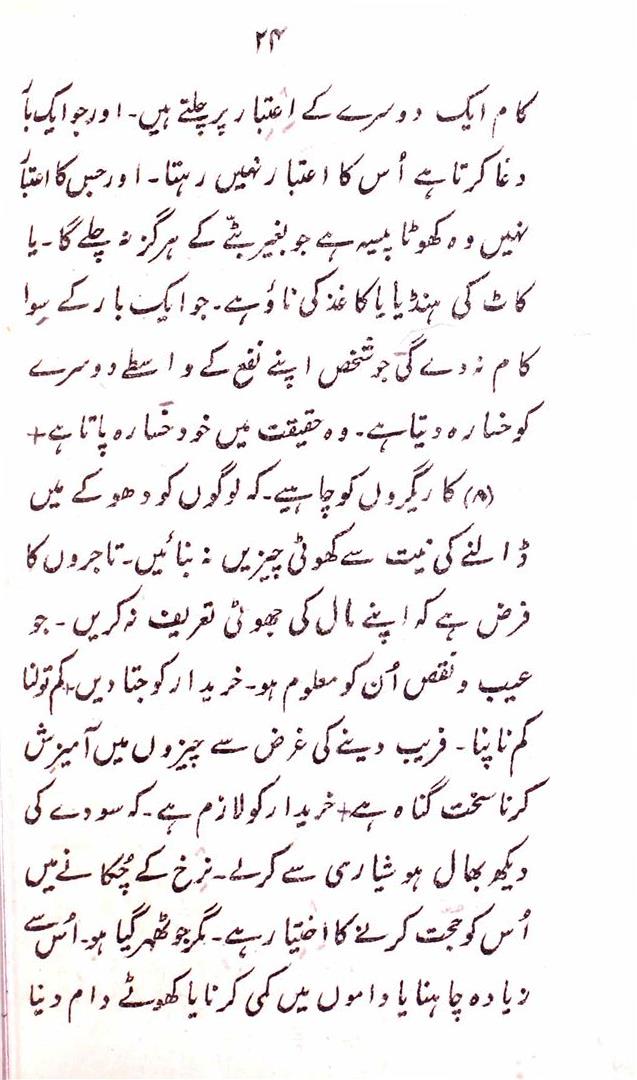 ۲۴
کام ایک دوسرے کے اعتبار پر چلتے ہیں۔ اور جو ایک بار
دغا کرتا ہے اُس کا اعتبار نہیں رہتا۔ اور جس کا اعتبار
نہیں وہ کھوٹا پیسہ ہے جو بغیر بٹّے کے ہرگز نہ چلے گا۔ یا
کاٹ کی ہنڈیا یا کاغذ کی ناؤ ہے۔ جو ایک بار کے سوا
کام نہ دے گی جو شخص اپنے نفع کے واسطے دوسرے
کو خسارہ دیتا ہے۔ وہ حقیقت میں خود خسارہ پاتا ہے+
(۸) کاریگروں کو چاہیے۔ کہ لوگوں کو دھوکے میں
ڈالنے کی نیت سے کھوٹی چیزیں نہ بنائیں۔ تاجروں کا
فرض ہے کہ اپنے مال کی جھوٹی تعریف نہ کریں۔ جو
عیب و نقص اُن کو معلوم ہو۔ خریدار کو جتا دیں۔ کم تولنا
کم ناپنا۔ فریب دینے کی غرض سے چیزوں میں آمیزش
کرنا سخت گناہ ہے+ خریدار کو لازم ہے۔ کہ سودے کی
دیکھ بھال ہوشیاری سے کرلے۔ نرخ کے چُکانے میں
اُس کو حجت کرنے کا اختیار ہے۔ مگر جو ٹھہر گیا ہو۔ اُس سے
زیادہ چاہنا یا داموں میں کمی کرنا یا کھوٹے دام دینا